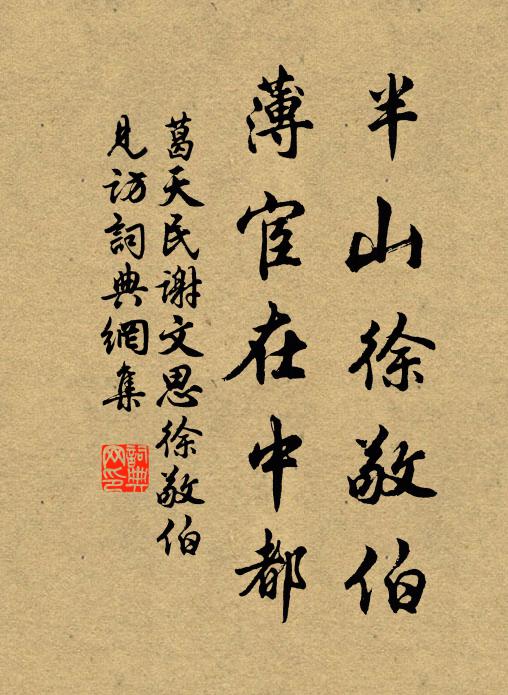 半山徐敬伯
薄宦在中都
葛天民谢文思徐敬伯
見访詞典網集
詞典
网印